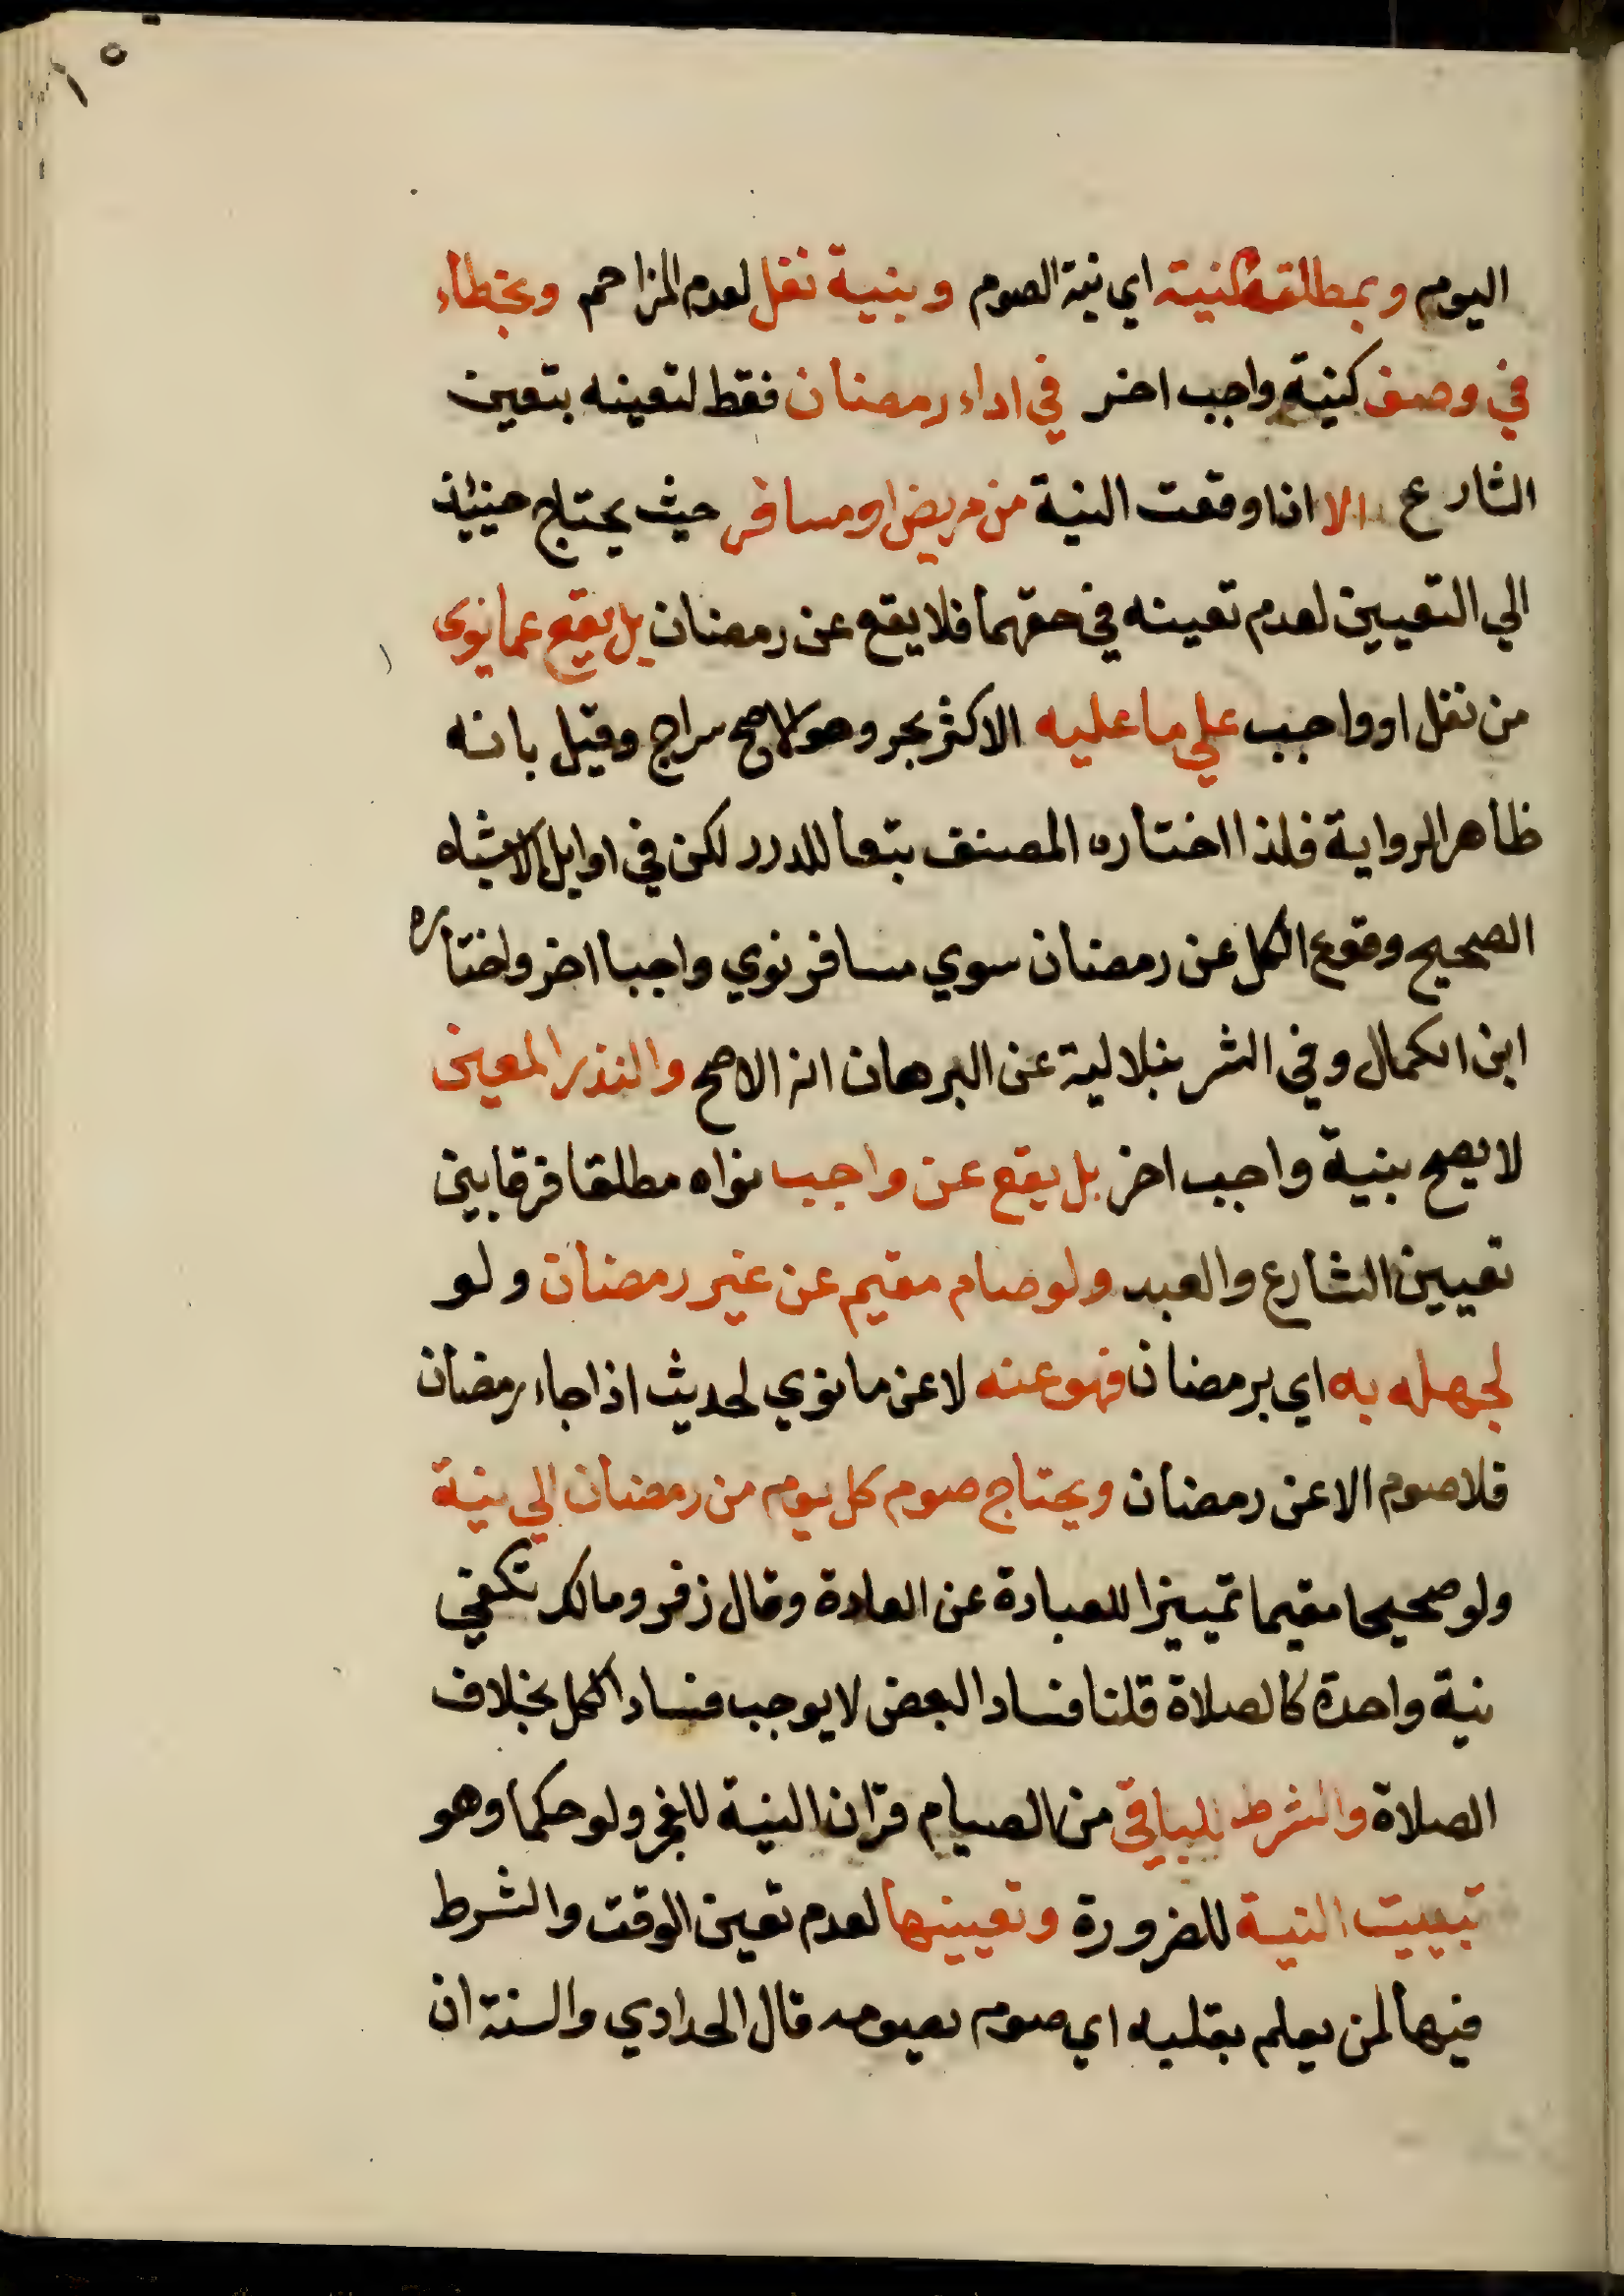 ١٥
اليوم وبمطلقة النية اي نية الصوم وبنية نفل لعدم المزاحم وبخطاء
في وصف كنية واجب اخر في اداء رمضان فقط لتعينه بتعين
الشارع الا اذا وقعت النية من مريض او مسافر حيث يحتاج حينئذ
الي التعيين لعدم تعينه في حقهما فلا يقع عن رمضان بل يقع عما نوى
من نفل او واجب علي ما عليه الاكثر بحر وهو الاصح سراج وقيل بانه
ظاهر الرواية فلذا اختاره المصنف تبعا للدرر لكن في اوايل الاشباه
الصحيح وقوع الكل عن رمضان سوي مسافر نوي واجبا اخر واختاره
ابن الكمال وفي الشرنبلالية عن البرهان انه الاصح والنذر المعين
لا يصح بنية واجب اخر بل يقع عن واجب نواه مطلقا فرقا بين
تعيين الشارع والعبد ولو صام مقيم عن غير رمضان ولو
لجهله به اي برمضان فهو عنه لا عن ما نوي لحديث اذا جاء رمضان
فلا صوم الا عن رمضان ويحتاج صوم كل يوم من رمضان الي نية
ولو صحيحا مقيما تمييزا للعبادة عن العادة وقال زفر ومالك تكفي
نية واحدة كالصلاة قلنا فساد البعض لا يوجب فساد الكل بخلاف
الصلاة والشرط للباقي من الصيام قران النية للفجر ولو حكما وهو
تبييت النية للضرورة وتعيينها لعدم تعين الوقت والشرط
فيها لمن يعلم بقلبه اي صوم يصومه قال الحدادي والسنة ان